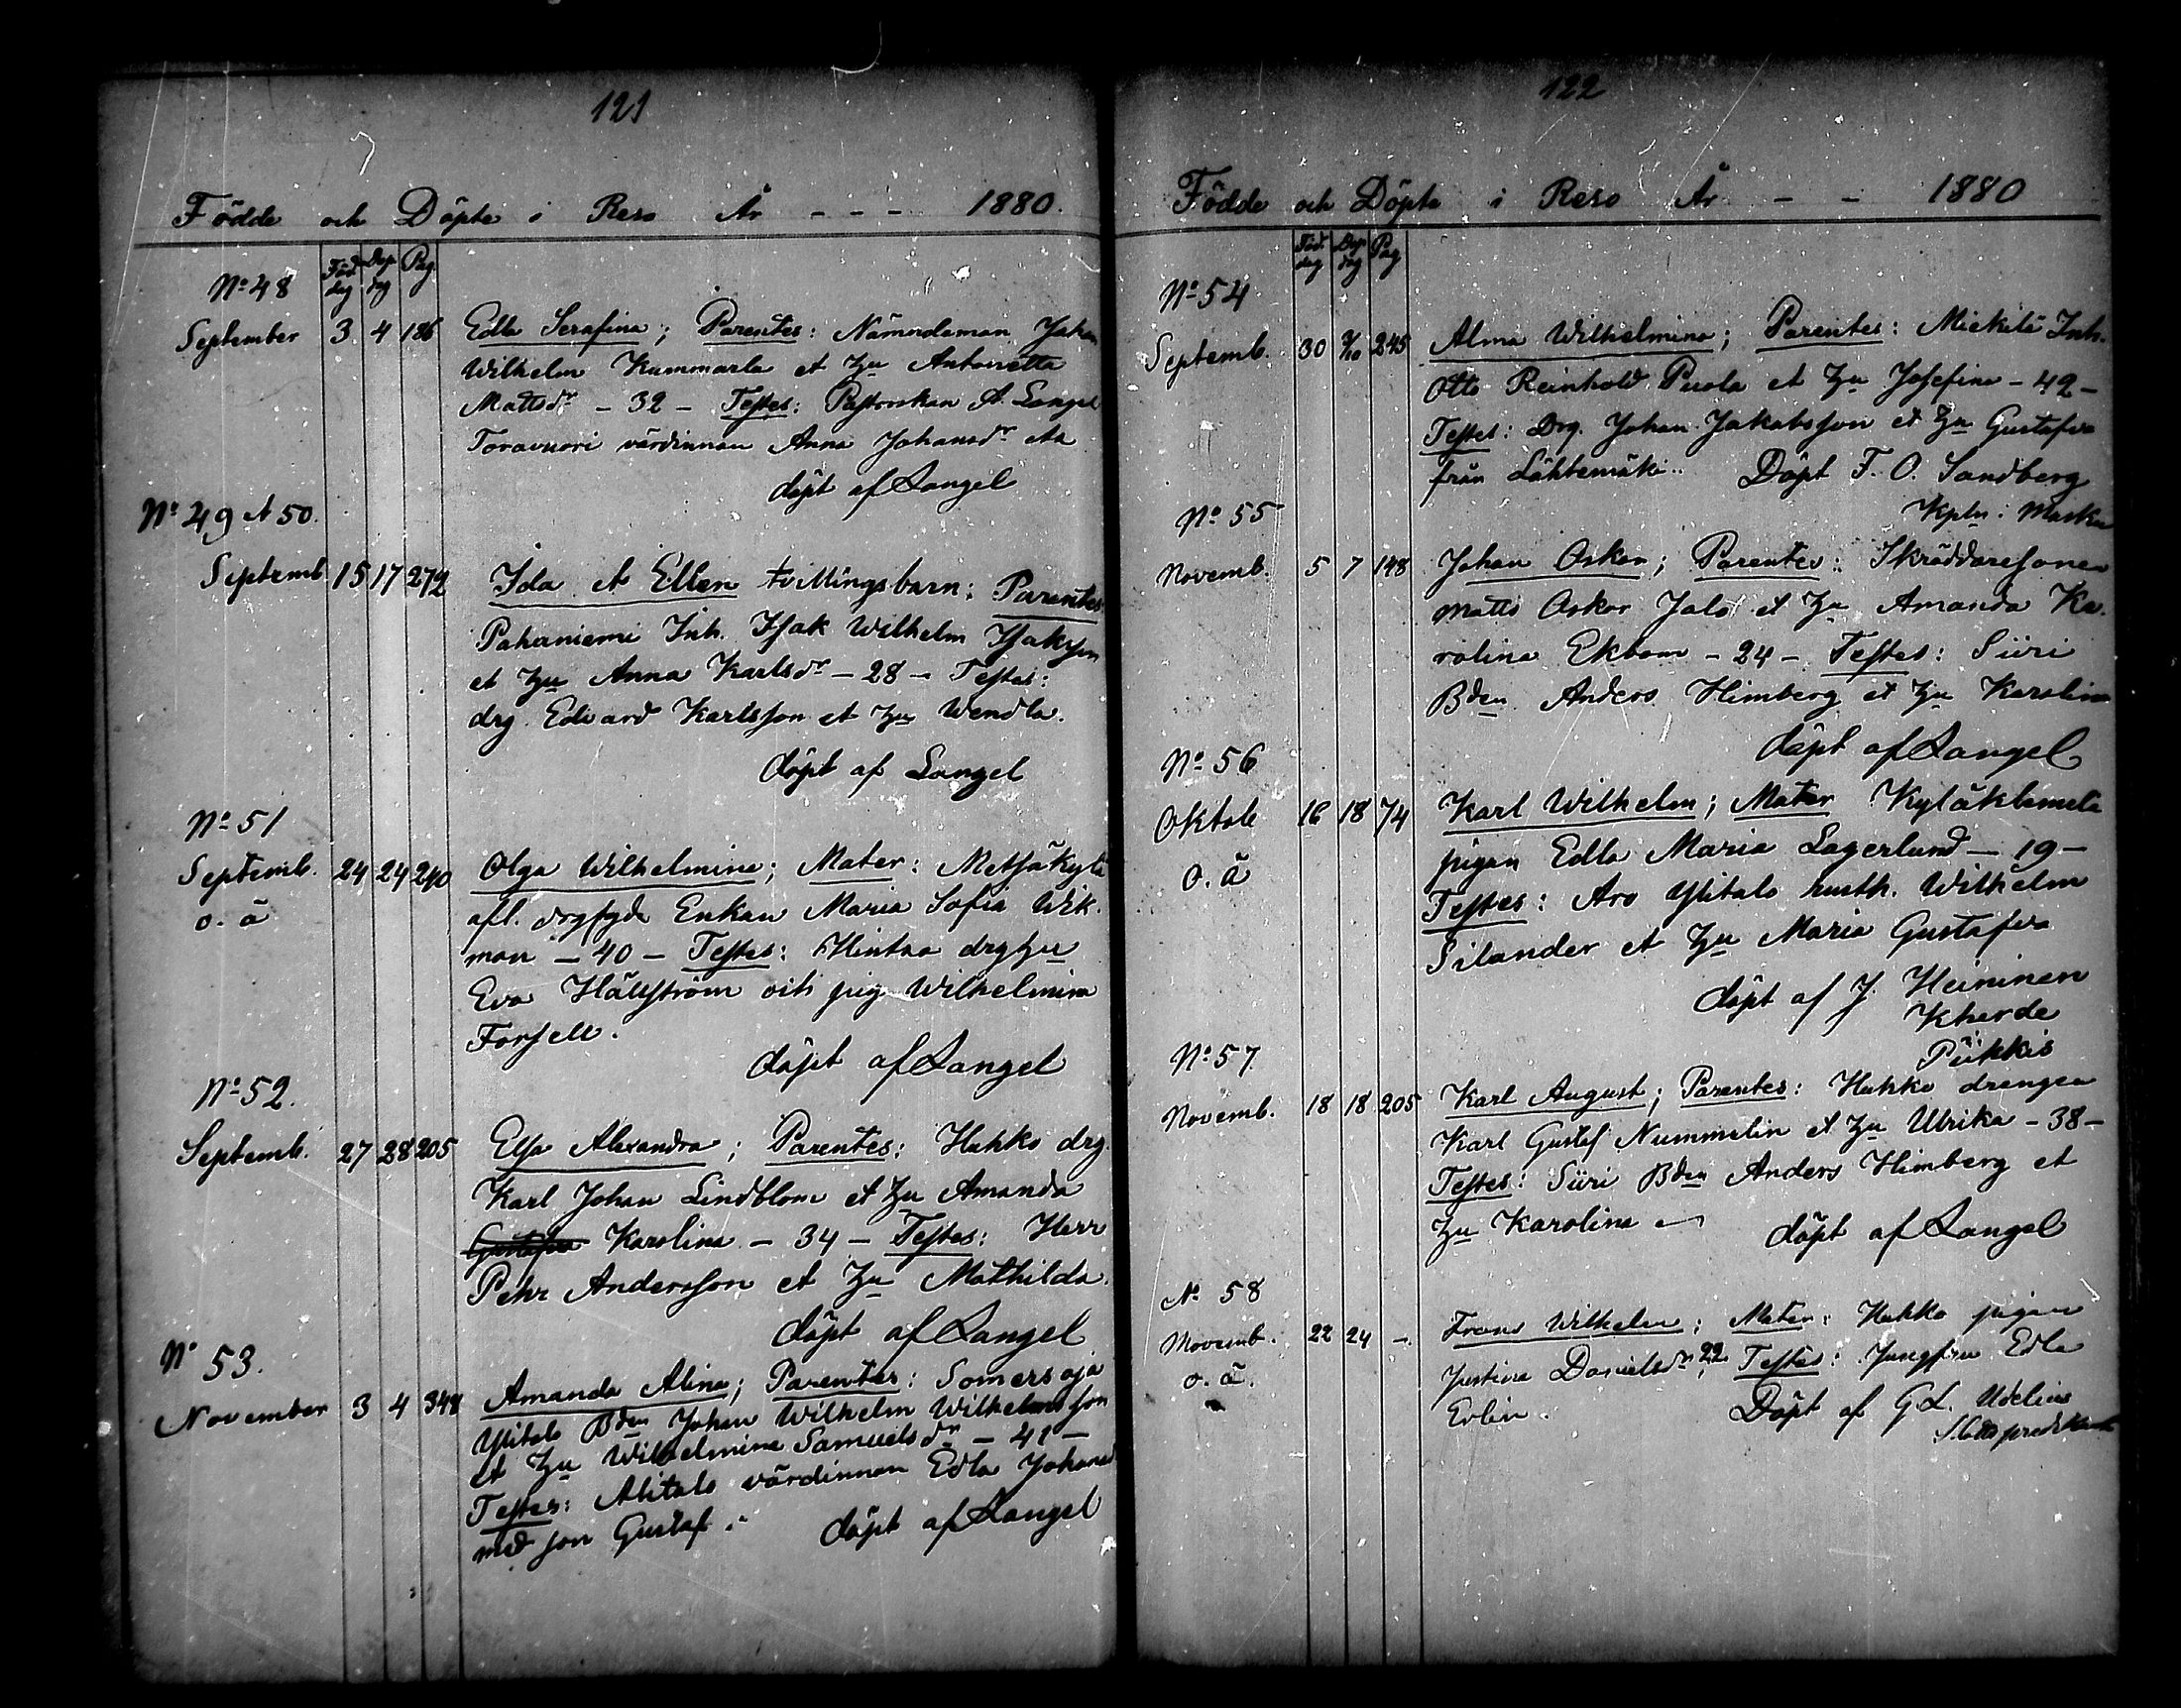 121
Födde och Döpte i Reso År - - - 1880.
Föd. dag Dop dag Pag.
No 48
September 3 4 186 Edla Serafina; Parentes: Nämndeman Johan
Wilhelm Kummarla et hu Antonietta
Mattsdr - 32 - Testes: Pastorskan A. Langel
Toravuori värdinnan Anna Johansdr
döpt af Langel
No 49 et 50.
Septemb. 15 17 272 Ida et Ellen tvillingsbarn; Parentes
Pahaniemi Inh. Isak Wilhelm Isaksson
et hu Anna Karlsdr - 28 - Testes:
drg. Edvard Karlsson et hu Wendla.
döpt af Langel
No 51
Septemb. 24 24 290 Olga Wilhelmina; Mater: Metsäkylä
o. ä afl. Enkan Maria Sofia Wik-
man - 40 - Testes: Hintsa drghu
Eva Hällström och pig Wilhelmina
Forsell.
döpt af Langel
No 52.
Septemb. 27 28 205 Elsa Alexandra; Parentes: Hahko drg.
Karl Johan Lindblom et hu Amanda
Gustafva Karolina - 34 - Testes: Herr
Pehr Andersson et hu Mathilda.
döpt af Langel
No 53.
November 3 4 348 Amanda Alina; Parentes: Somersoja
Ylitalo Bden Johan Wilhelm Wilhelmsson
et hu Wilhelmina Samuelsdr - 41 -
Testes: Alitalo värdinnan Edla Johansd
med son Gustaf.
döpt af Langel
122
Födde och Döpte i Reso År - - 1880
Föd. dag Dop dag Pag
No 54
Septemb. 30 3/10 245 Alma Wilhelmina; Parentes: Mickilä Inh.
Otto Reinhold Puola et hu Josefina - 42 -
Testes: Drg. Johan Jakobsson et hu Gustafva
från Lähtemäki. Döpt F. O. Sandberg
Kpln i Masku
No 55
Novemb. 5 7 148 Johan Oskar; Parentes: Skräddaresonen
Matts Oskar Jalo et hu Amanda Ka-
rolina Ekbom - 24 - Testes: Siiri
Bden Anders Himberg et hu Karolina
döpt af Langel
No 56
Oktob 16 18 74 Karl Wilhelm; Mater
o. ä pigan Edla Maria Lagerlund - 19 -
Testes: Aro Ylitalo rusth. Wilhelm
Silander et hu Maria Gustafva
döpt af J. Heininen
Kherde
Piikkis
No 57.
Novemb. 18 18 205 Karl August; Parentes: Hahko drengen
Karl Gustaf Nummelin et hu Ulrika - 38 -
Testes: Siiri Bden Anders Himberg et
hu Karolina
döpt af Langel
No 58
Novemb. 22 24 - Frans Wilhelm; Mater: Hahko pigan
o. ä. Justina Danielsdr, 22. Testes: Jungfru Edla
Evlin. Döpt af G. L. Udelius
Slottspredikant